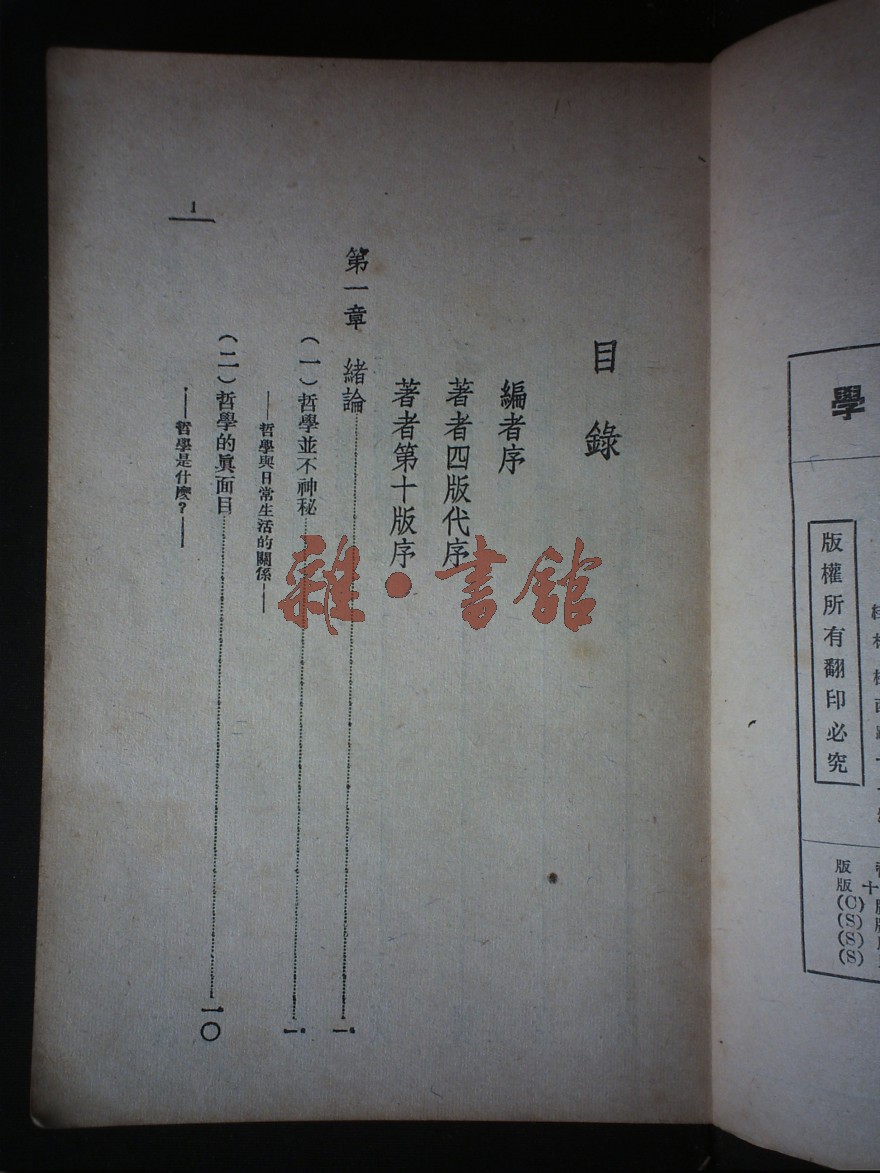 學
版權所有翻印必究
版
版 十
(C)
(S)
(S)
(S)
目錄
編者序
著者四版代序
著者第十版序
第一章 緒論……一
（一）哲學並不神秘……一
——哲學與日常生活的關係——
（二）哲學的眞面目……一〇
——哲學是什麽？——
1
雜·書館